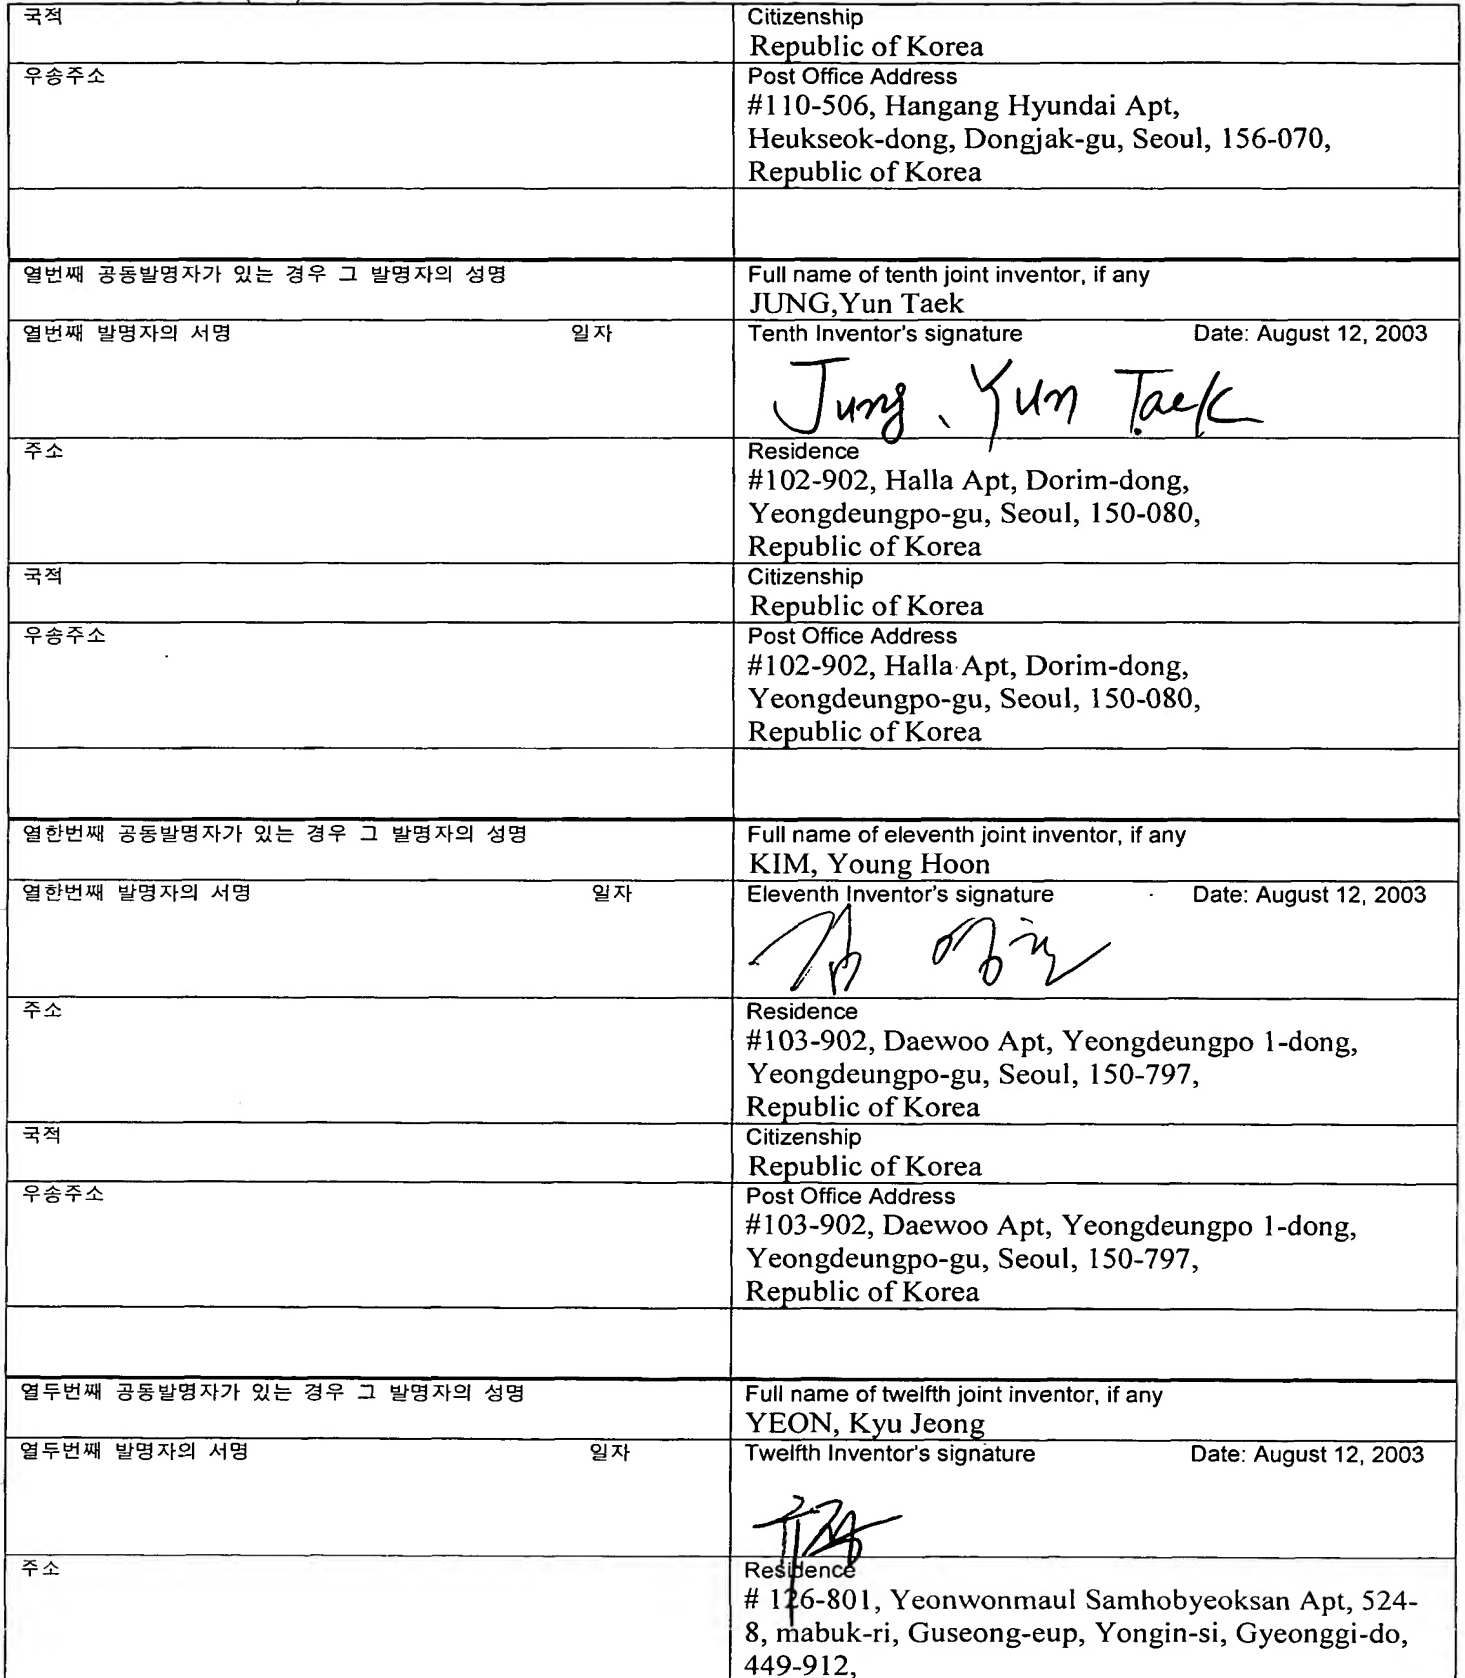 국적
Citizenship
Republic of Korea
우송주소
Post Office Address
#110-506, Hangang Hyundai Apt,
Heukseok-dong, Dongjak-gu, Seoul, 156-070,
Republic of Korea
열번째 공동발명자가 있는 경우 그 발명자의 성명
Full name of tenth joint inventor, if any
JUNG,Yun Taek
열번째 발명자의 서명 일자
Tenth Inventor's signature Date: August 12, 2003
Jung, Yun Taek
주소
Residence
#102-902, Halla Apt, Dorim-dong,
Yeongdeungpo-gu, Seoul, 150-080,
Republic of Korea
국적
Citizenship
Republic of Korea
우송주소
Post Office Address
#102-902, Halla Apt, Dorim-dong,
Yeongdeungpo-gu, Seoul, 150-080,
Republic of Korea
열한번째 공동발명자가 있는 경우 그 발명자의 성명
Full name of eleventh joint inventor, if any
KIM, Young Hoon
열한번째 발명자의 서명 일자
Eleventh Inventor's signature Date: August 12, 2003
김 영훈
주소
Residence
#103-902, Daewoo Apt, Yeongdeungpo 1-dong,
Yeongdeungpo-gu, Seoul, 150-797,
Republic of Korea
국적
Citizenship
Republic of Korea
우송주소
Post Office Address
#103-902, Daewoo Apt, Yeongdeungpo 1-dong,
Yeongdeungpo-gu, Seoul, 150-797,
Republic of Korea
열두번째 공동발명자가 있는 경우 그 발명자의 성명
Full name of twelfth joint inventor, if any
YEON, Kyu Jeong
열두번째 발명자의 서명 일자
Twelfth Inventor's signature Date: August 12, 2003
주소
Residence
# 126-801, Yeonwonmaul Samhobyeoksan Apt, 524-
8, mabuk-ri, Guseong-eup, Yongin-si, Gyeonggi-do,
449-912,